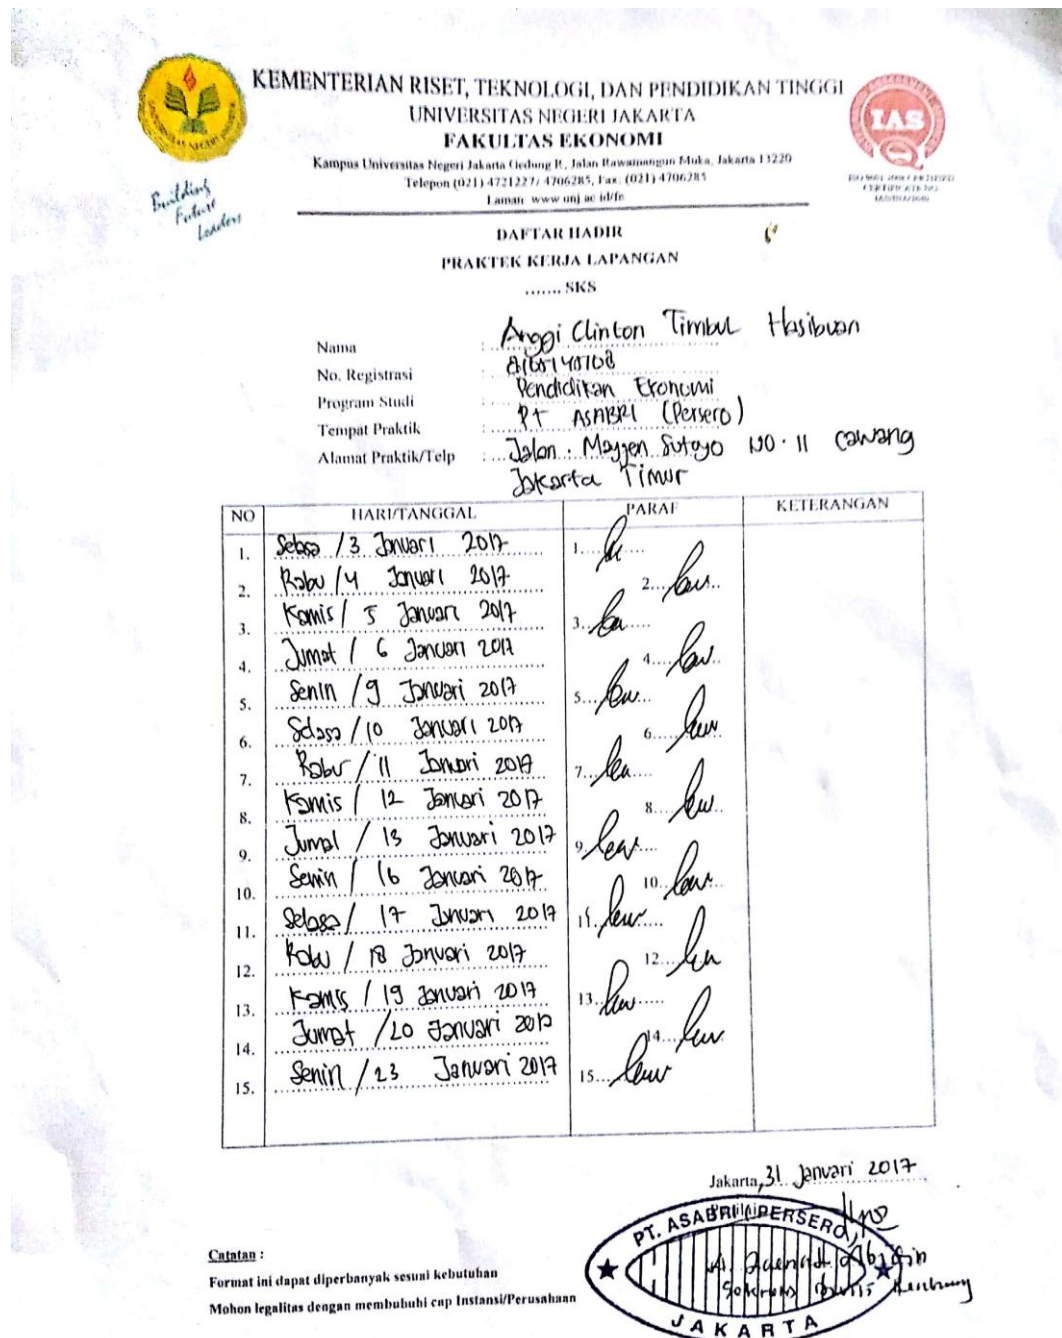 KEMENTERIAN RISET, TEKNOLOGI, DAN PENDIDIKAN TINGGI
UNIVERSITAS NEGERI JAKARTA
FAKULTAS EKONOMI
Kampus Universitas Negeri Jakarta Gedung R, Jalan Rawamangun Muka, Jakarta 13220
Telepon (021) 4721227/ 4706285, Fax: (021) 4706285
Laman www unj ac id/fe
Building
Future
Leaders
IAS
DAFTAR HADIR
PRAKTEK KERJA LAPANGAN
....... SKS
Nama : Anggi Clinton Timbul Hasibuan
No. Registrasi :
Program Studi : Pendidikan Ekonomi
Tempat Praktik : PT ASABRI (Persero)
Alamat Praktik/Telp : Jalan : Mayjen Sutoyo NO. 11 Cawang
Jakarta Timur
NO HARI/TANGGAL PARAF KETERANGAN
1. Selasa / 3 Januari 2017 1.
2. Rabu / 4 Januari 2017 2.
3. Kamis / 5 Januari 2017 3.
4. Jumat / 6 Januari 2017 4.
5. Senin / 9 Januari 2017 5.
6. Selasa / 10 Januari 2017 6.
7. Rabu / 11 Januari 2017 7.
8. Kamis / 12 Januari 2017 8.
9. Jumat / 13 Januari 2017 9.
10. Senin / 16 Januari 2017 10.
11. Selasa / 17 Januari 2017 11.
12. Rabu / 18 Januari 2017 12.
13. Kamis / 19 Januari 2017 13.
14. Jumat / 20 Januari 2017 14.
15. Senin / 23 Januari 2017 15.
Jakarta, 31 Januari 2017
PT. ASABRI (PERSERO)
JAKARTA
Catatan :
Format ini dapat diperbanyak sesuai kebutuhan
Mohon legalitas dengan membubuhi cap Instansi/Perusahaan